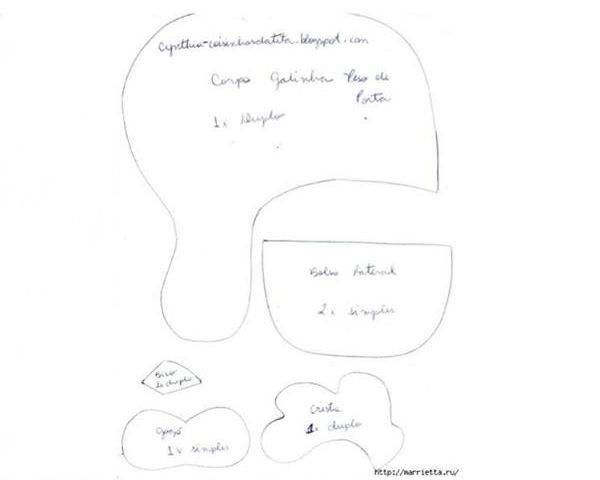 Cynthia-coisinhasdatita.blogspot.com
Corpo Galinha Peso de
Porta
1x Duplo
Bolso Lateral
2x simples
Bico
1x duplo
1x simples
Crista
1x duplo
http://marrietta.ru/